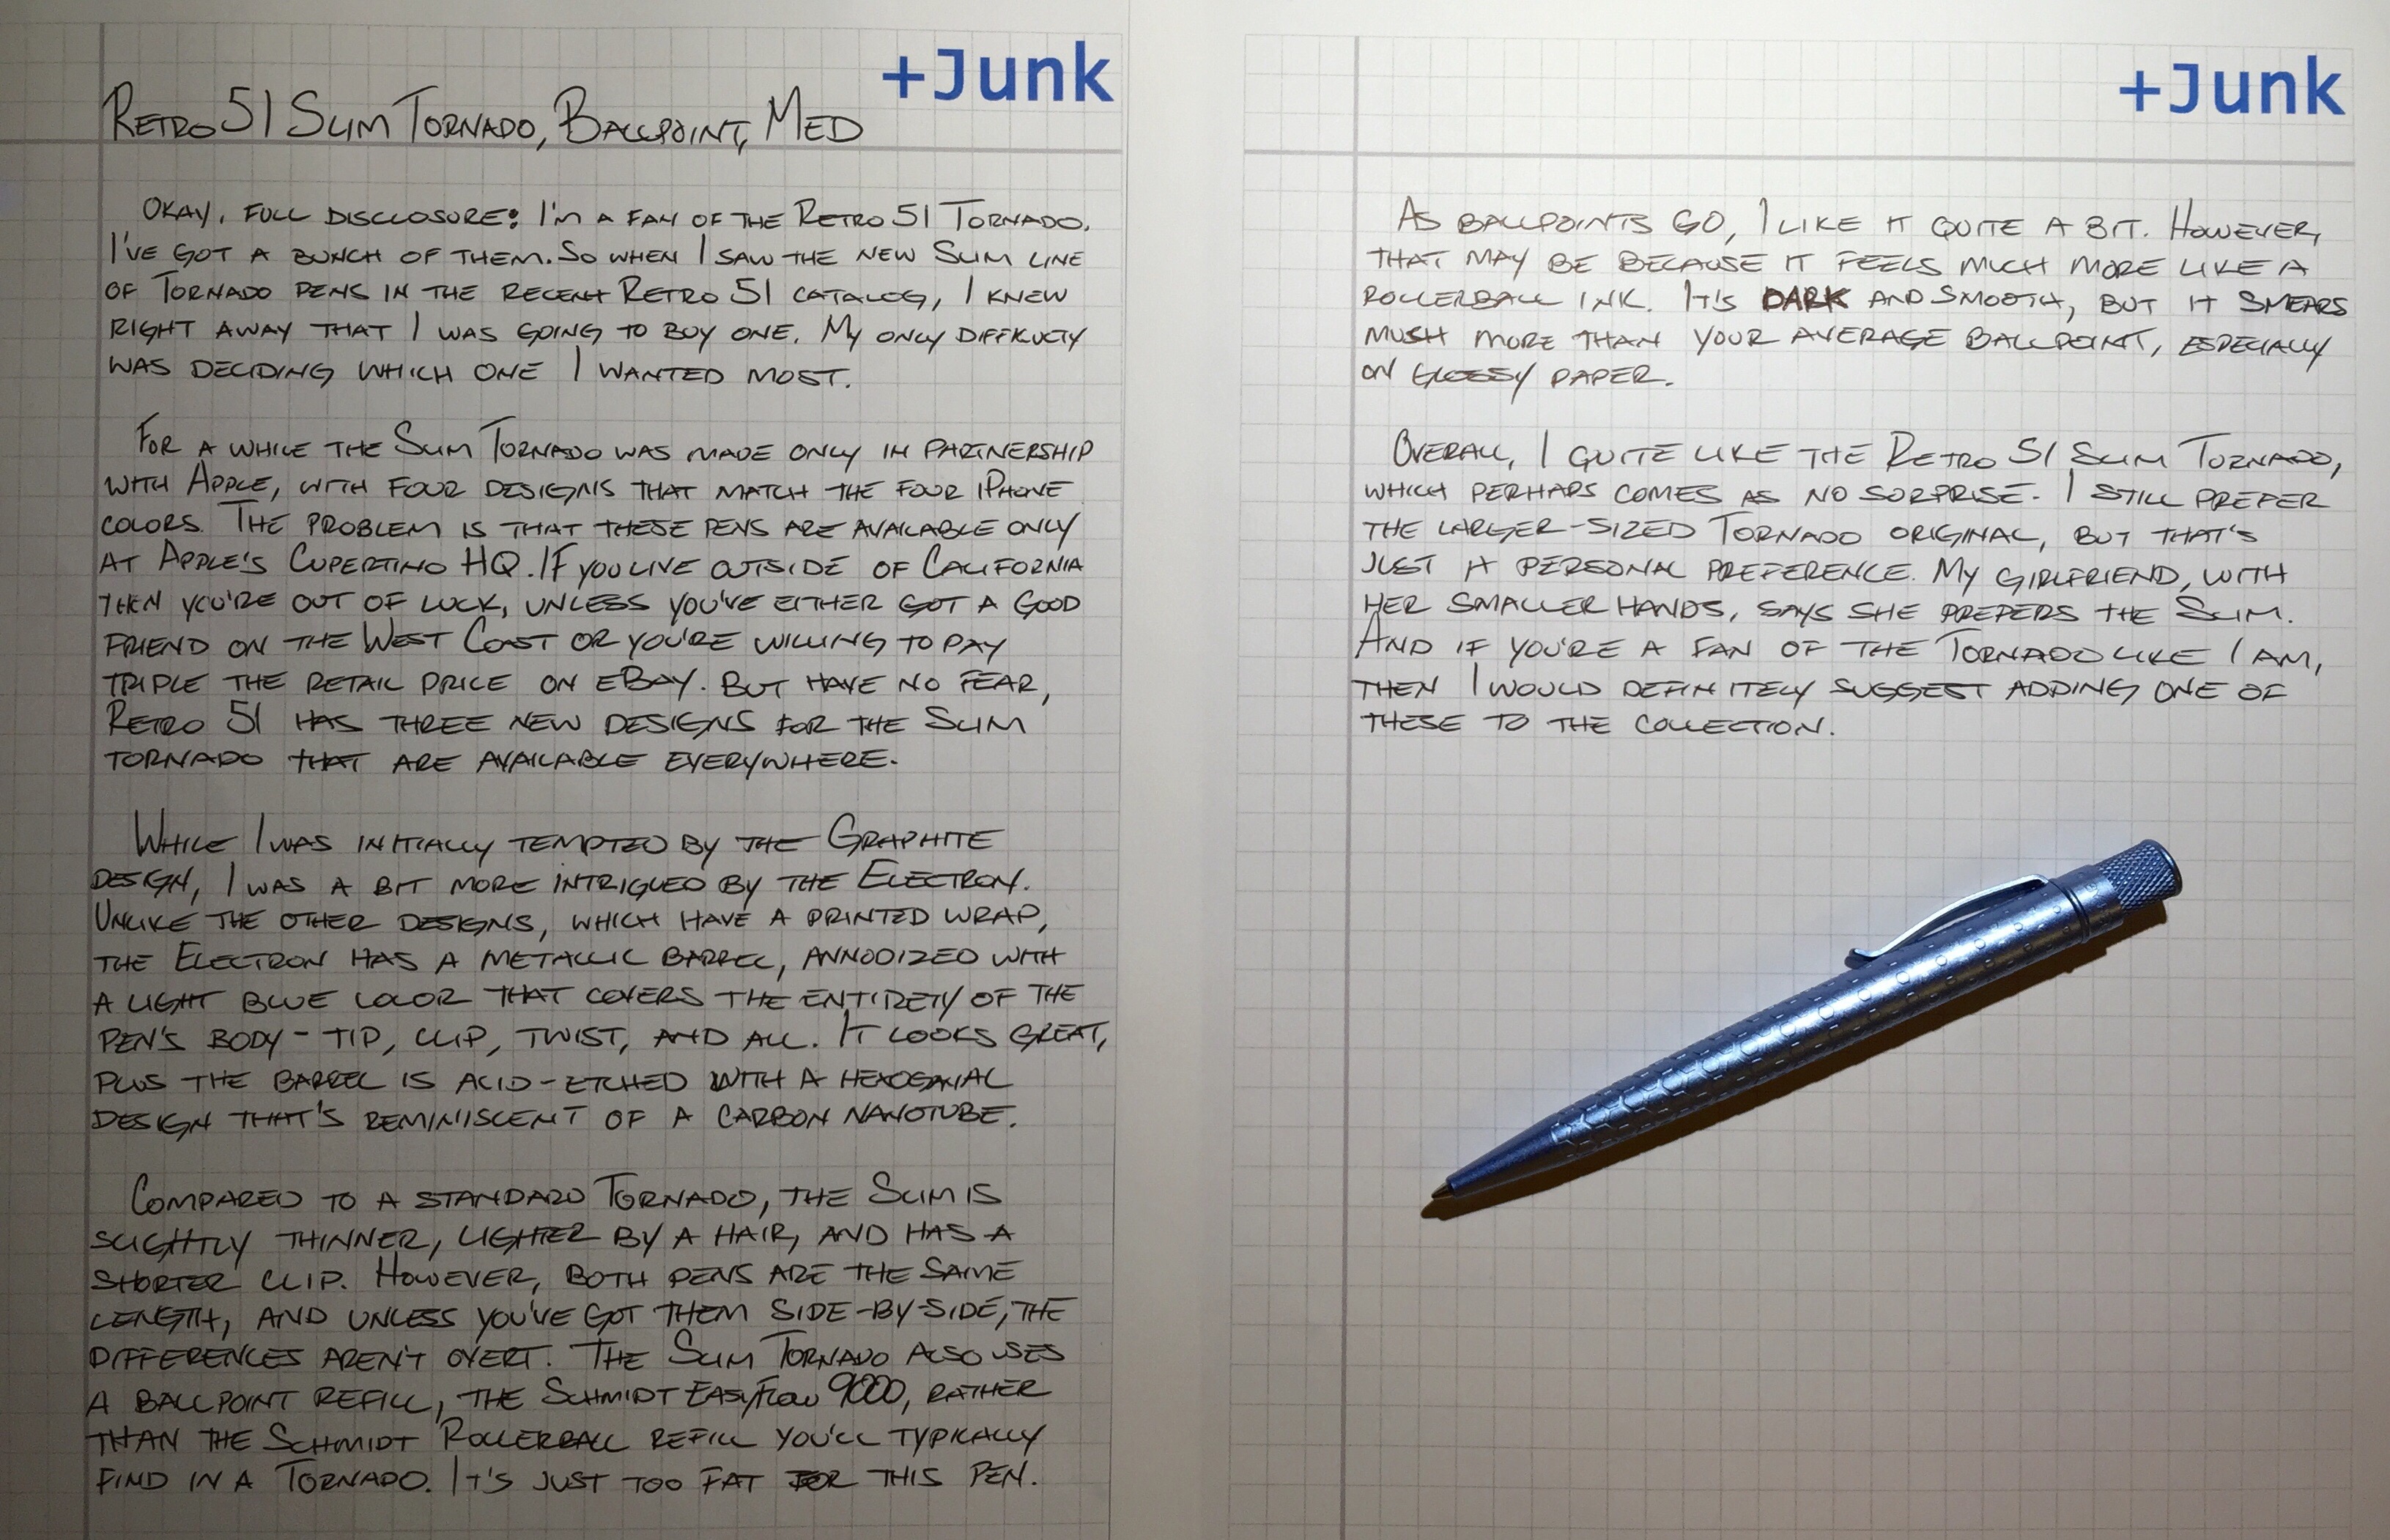 +Junk
RETRO 51 SLIM TORNADO, BALLPOINT, MED
OKAY, FULL DISCLOSURE: I'M A FAN OF THE RETRO 51 TORNADO.
I'VE GOT A BUNCH OF THEM. SO WHEN I SAW THE NEW SLIM LINE
OF TORNADO PENS IN THE RECENT RETRO 51 CATALOG, I KNEW
RIGHT AWAY THAT I WAS GOING TO BUY ONE. MY ONLY DIFFICULTY
WAS DECIDING WHICH ONE I WANTED MOST.
FOR A WHILE THE SLIM TORNADO WAS MADE ONLY IN PARTNERSHIP
WITH APPLE, WITH FOUR DESIGNS THAT MATCH THE FOUR IPHONE
COLORS. THE PROBLEM IS THAT THESE PENS ARE AVAILABLE ONLY
AT APPLE'S CUPERTINO HQ. IF YOU LIVE OUTSIDE OF CALIFORNIA
THEN YOU'RE OUT OF LUCK, UNLESS YOU'VE EITHER GOT A GOOD
FRIEND ON THE WEST COAST OR YOU'RE WILLING TO PAY
TRIPLE THE RETAIL PRICE ON EBAY. BUT HAVE NO FEAR,
RETRO 51 HAS THREE NEW DESIGNS FOR THE SLIM
TORNADO THAT ARE AVAILABLE EVERYWHERE.
WHILE I WAS INITIALLY TEMPTED BY THE GRAPHITE
DESIGN, I WAS A BIT MORE INTRIGUED BY THE ELECTRON.
UNLIKE THE OTHER DESIGNS, WHICH HAVE A PRINTED WRAP,
THE ELECTRON HAS A METALLIC BARREL, ANNODIZED WITH
A LIGHT BLUE COLOR THAT COVERS THE ENTIRETY OF THE
PEN'S BODY - TIP, CLIP, TWIST, AND ALL. IT LOOKS GREAT,
PLUS THE BARREL IS ACID-ETCHED WITH A HEXOGANAL
DESIGN THAT'S REMINISCENT OF A CARBON NANOTUBE.
COMPARED TO A STANDARD TORNADO, THE SLIM IS
SLIGHTLY THINNER, LIGHTER BY A HAIR, AND HAS A
SHORTER CLIP. HOWEVER, BOTH PENS ARE THE SAME
LENGTH, AND UNLESS YOU'VE GOT THEM SIDE-BY-SIDE, THE
DIFFERENCES AREN'T OVERT. THE SLIM TORNADO ALSO USES
A BALLPOINT REFILL, THE SCHMIDT EASYFLOW 9000, RATHER
THAN THE SCHMIDT ROLLERBALL REFILL YOU'LL TYPICALLY
FIND IN A TORNADO. IT'S JUST TOO FAT FOR THIS PEN.
+Junk
AS BALLPOINTS GO, I LIKE IT QUITE A BIT. HOWEVER,
THAT MAY BE BECAUSE IT FEELS MUCH MORE LIKE A
ROLLERBALL INK. IT'S DARK AND SMOOTH, BUT IT SMEARS
MUSH MORE THAN YOUR AVERAGE BALLPOINT, ESPECIALLY
ON GLOSSY PAPER.
OVERALL, I QUITE LIKE THE RETRO 51 SLIM TORNADO,
WHICH PERHAPS COMES AS NO SORPRISE. I STILL PREFER
THE LARGER-SIZED TORNADO ORIGINAL, BUT THAT'S
JUST A PERSONAL PREFERENCE. MY GIRLFRIEND, WITH
HER SMALLER HANDS, SAYS SHE PREFERS THE SLIM.
AND IF YOU'RE A FAN OF THE TORNADO LIKE I AM,
THEN I WOULD DEFINITELY SUGGEST ADDING ONE OF
THESE TO THE COLLECTION.